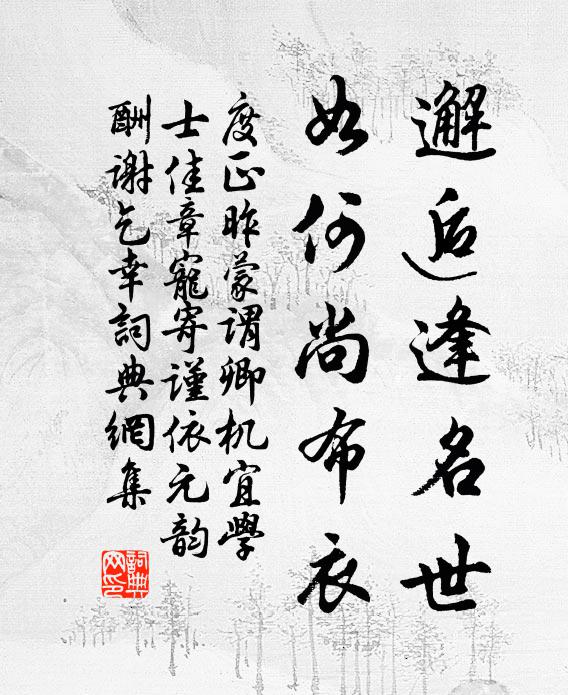 邂逅逢名世
如何尚布衣
度正昨蒙谓卿机宜學
士佳章寵寄謹依元韵
酬谢乞幸詞典網集
詞典
网印